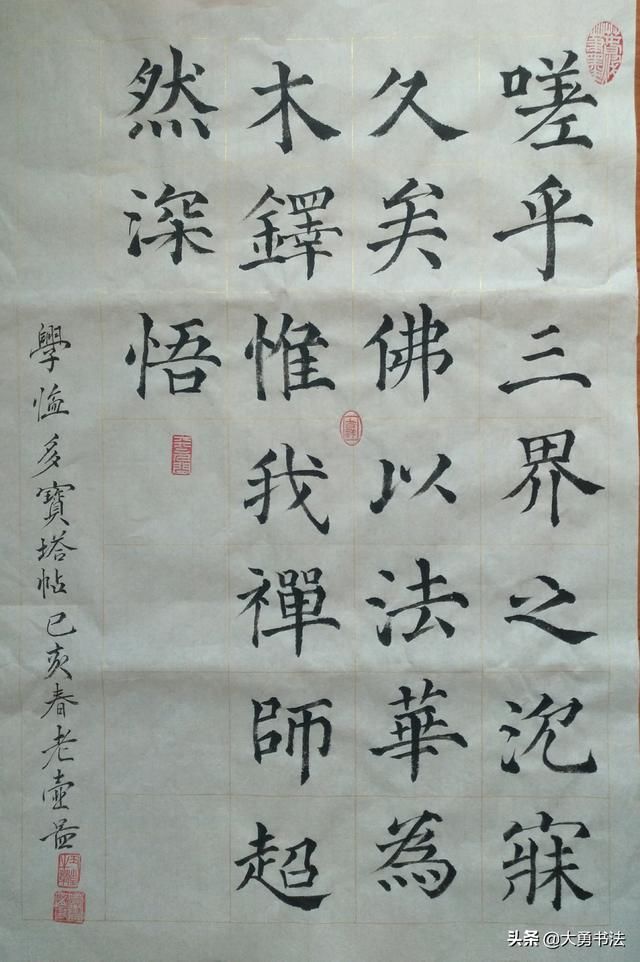 嗟乎三界之沉寐
久矣佛以法華為
木鐸惟我禪師超
然深悟
學臨多寶塔帖己亥春老壺益
头条@大勇书法